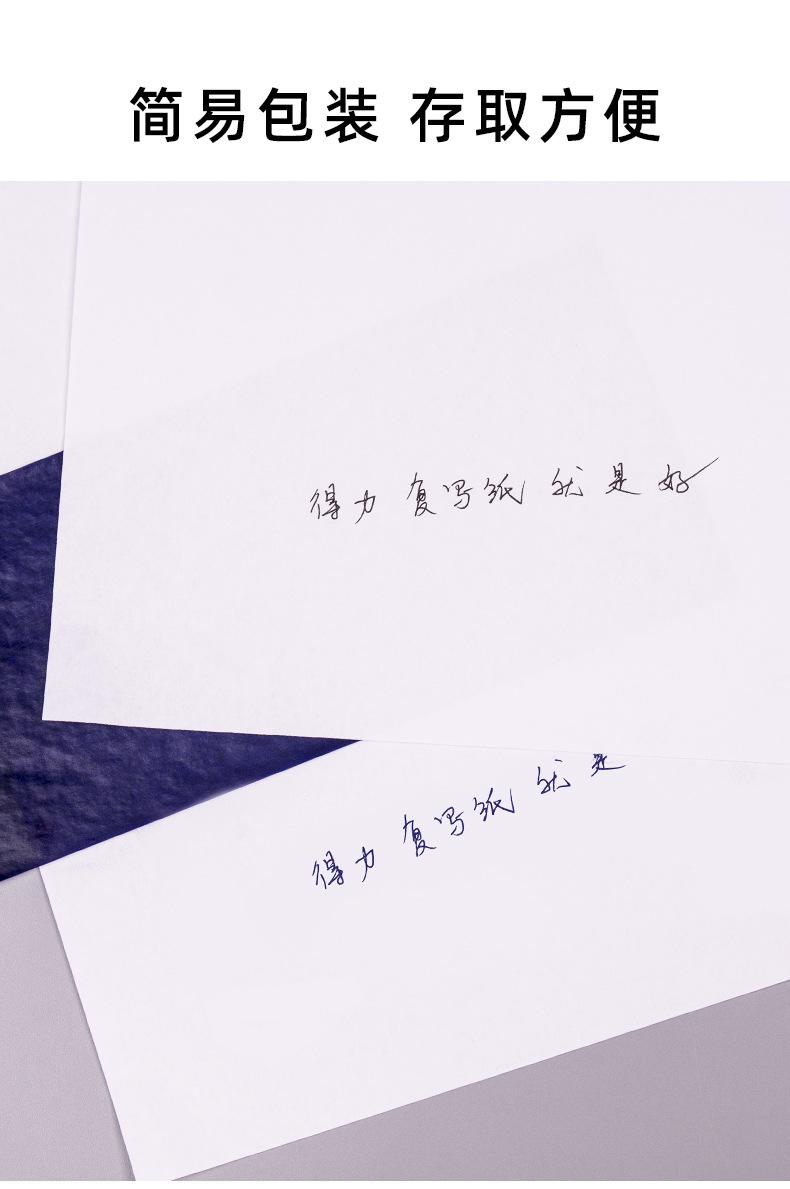 简易包装 存取方便
得力 复写纸 就是好
得力 复写纸 就是